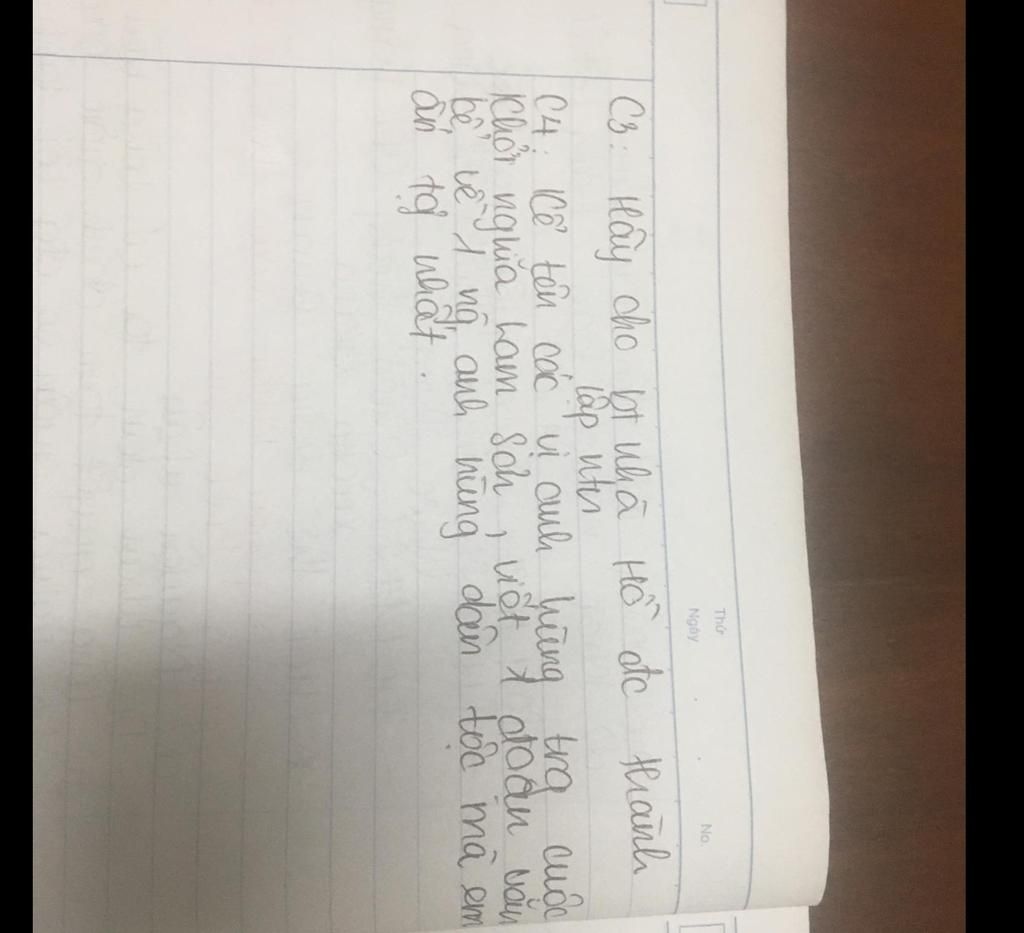 Thứ
Ngày
No.
C3: Hãy cho bt nhà Hồ đc thành
lập ntn
C4: Kể tên các vị anh hùng trg cuộc
Khởi nghĩa Lam Sơn, viết 1 đoạn văn
kể về 1 ng anh hùng dân tộc mà em
ấn tg nhất.